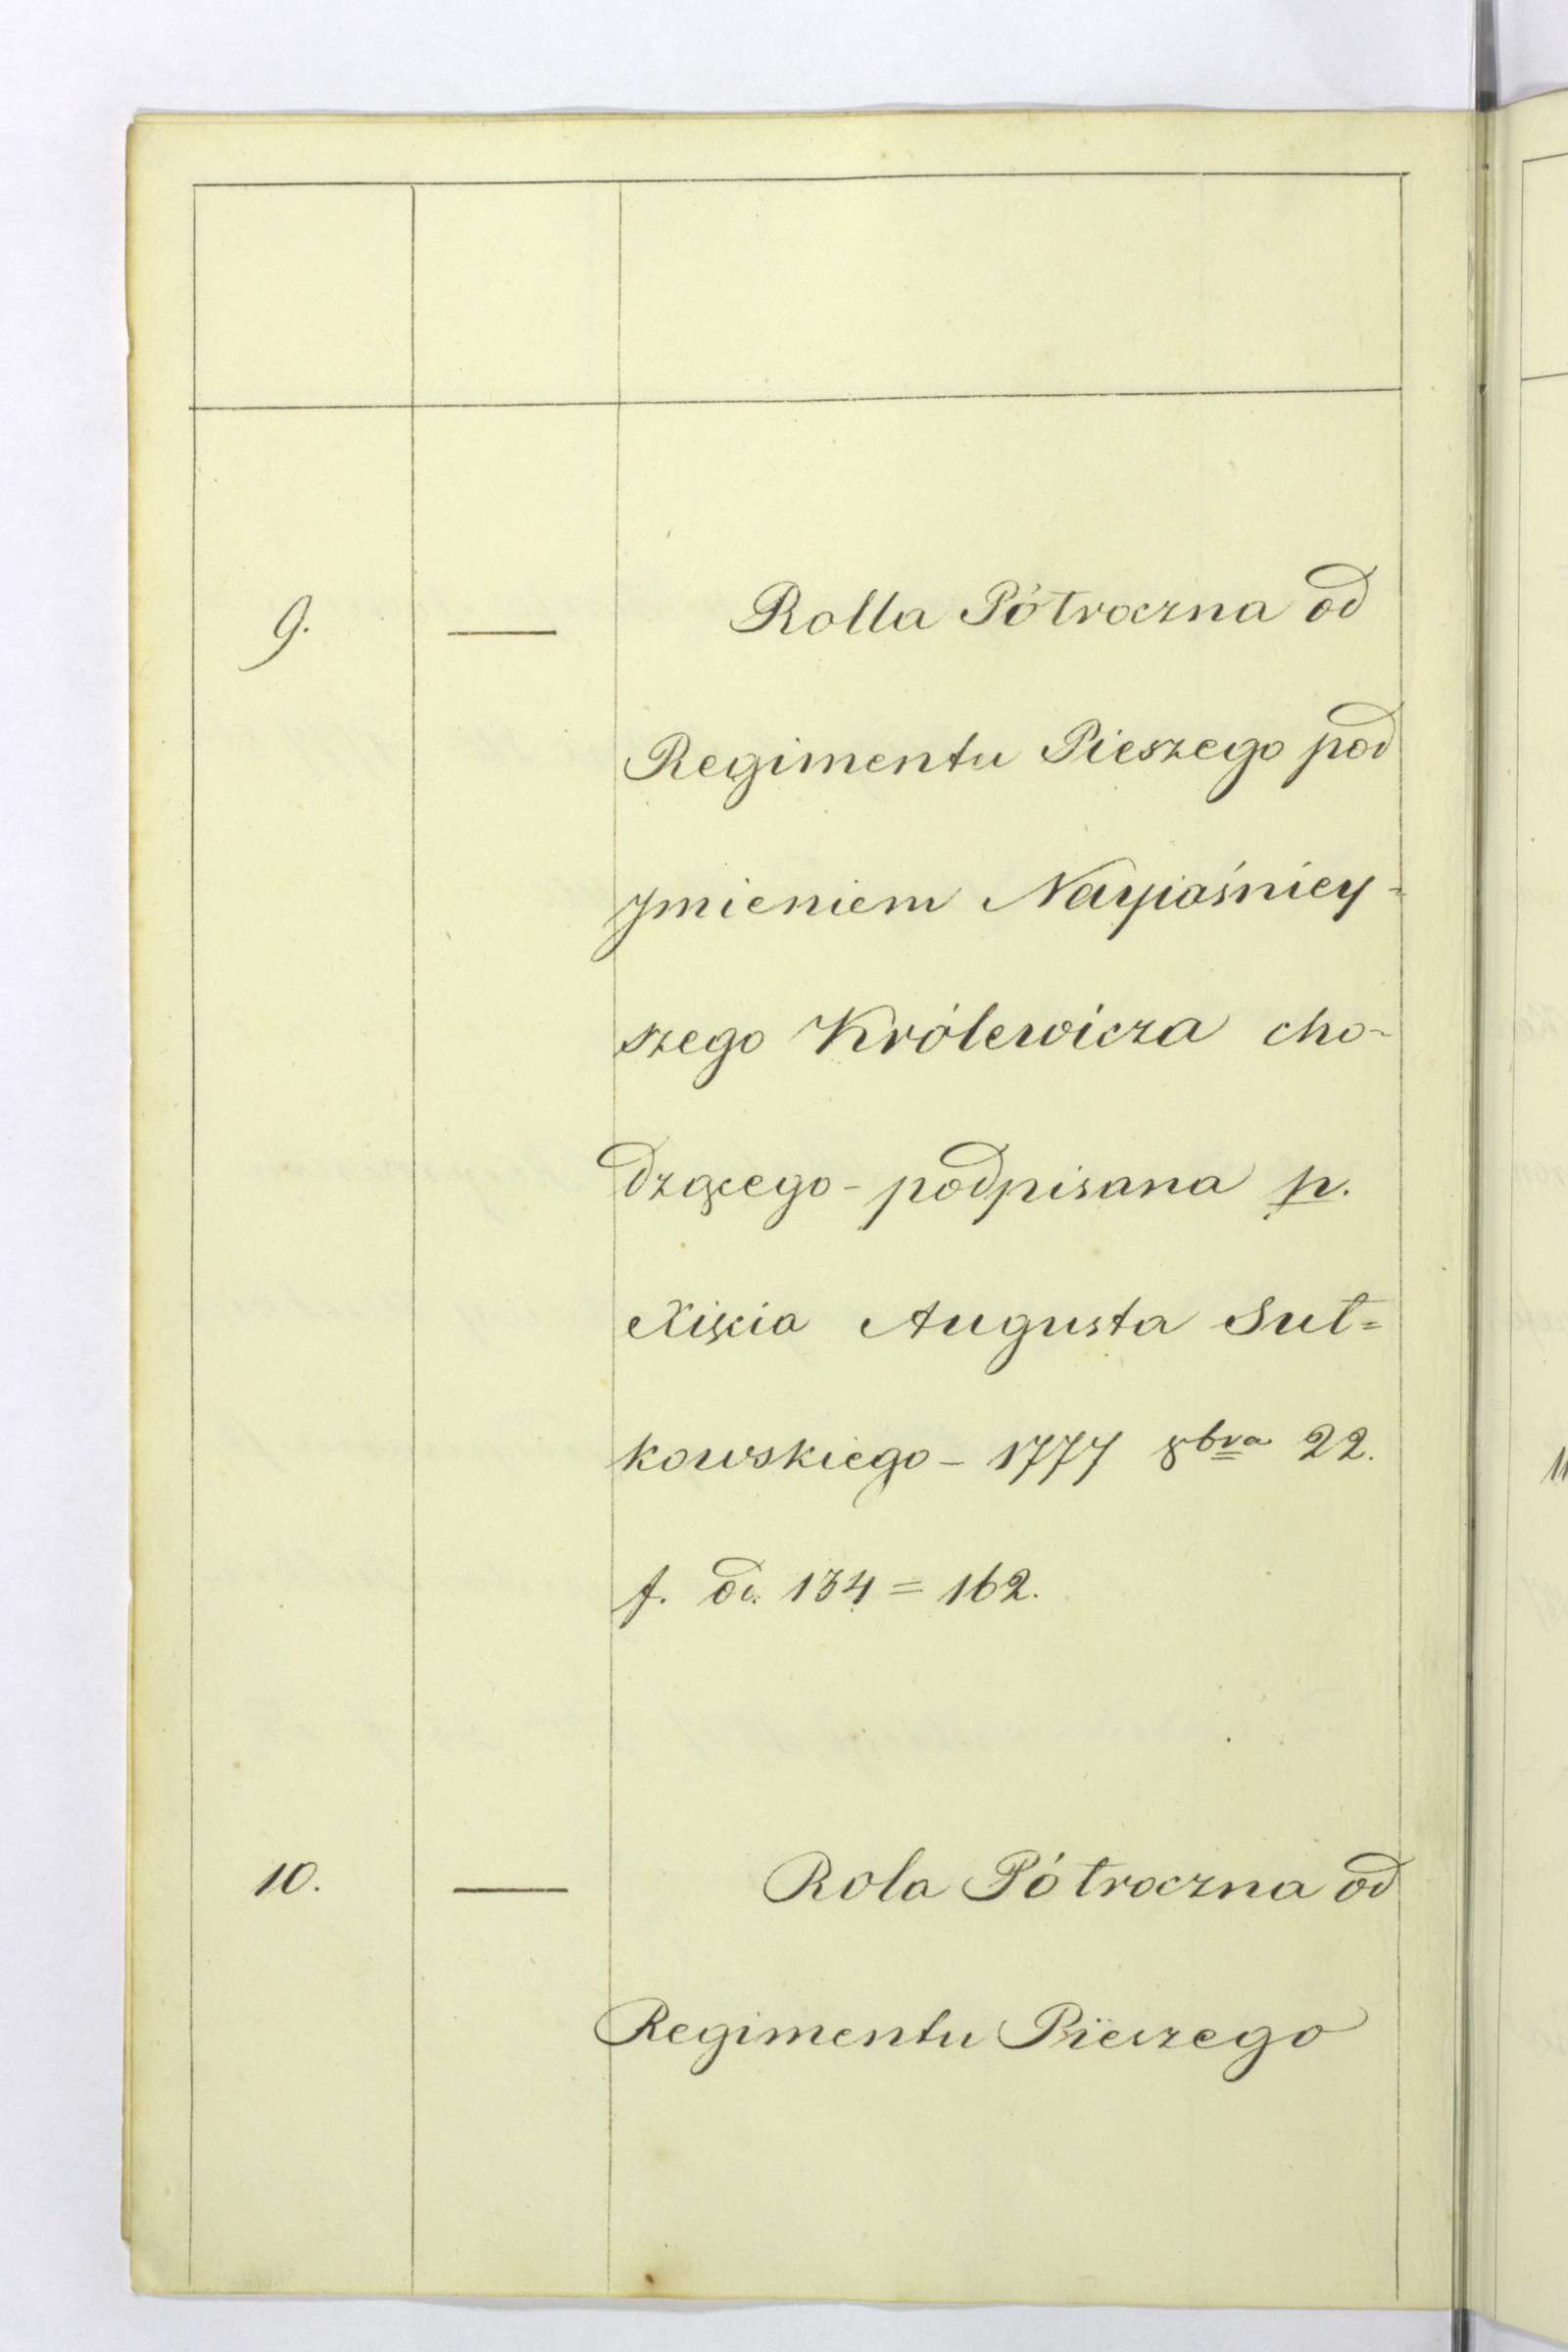 9. — Rolla Półroczna od
Regimentu Pieszego pod
Jmieniem Nayiaśniey=
szego Królewicza cho-
dzącego - podpisana p.
Xięcia Augusta Suł=
kowskiego - 1777 8bra 22.
f. od. 134 = 162.
10. — Rola Półroczna od
Regimentu Pieszego